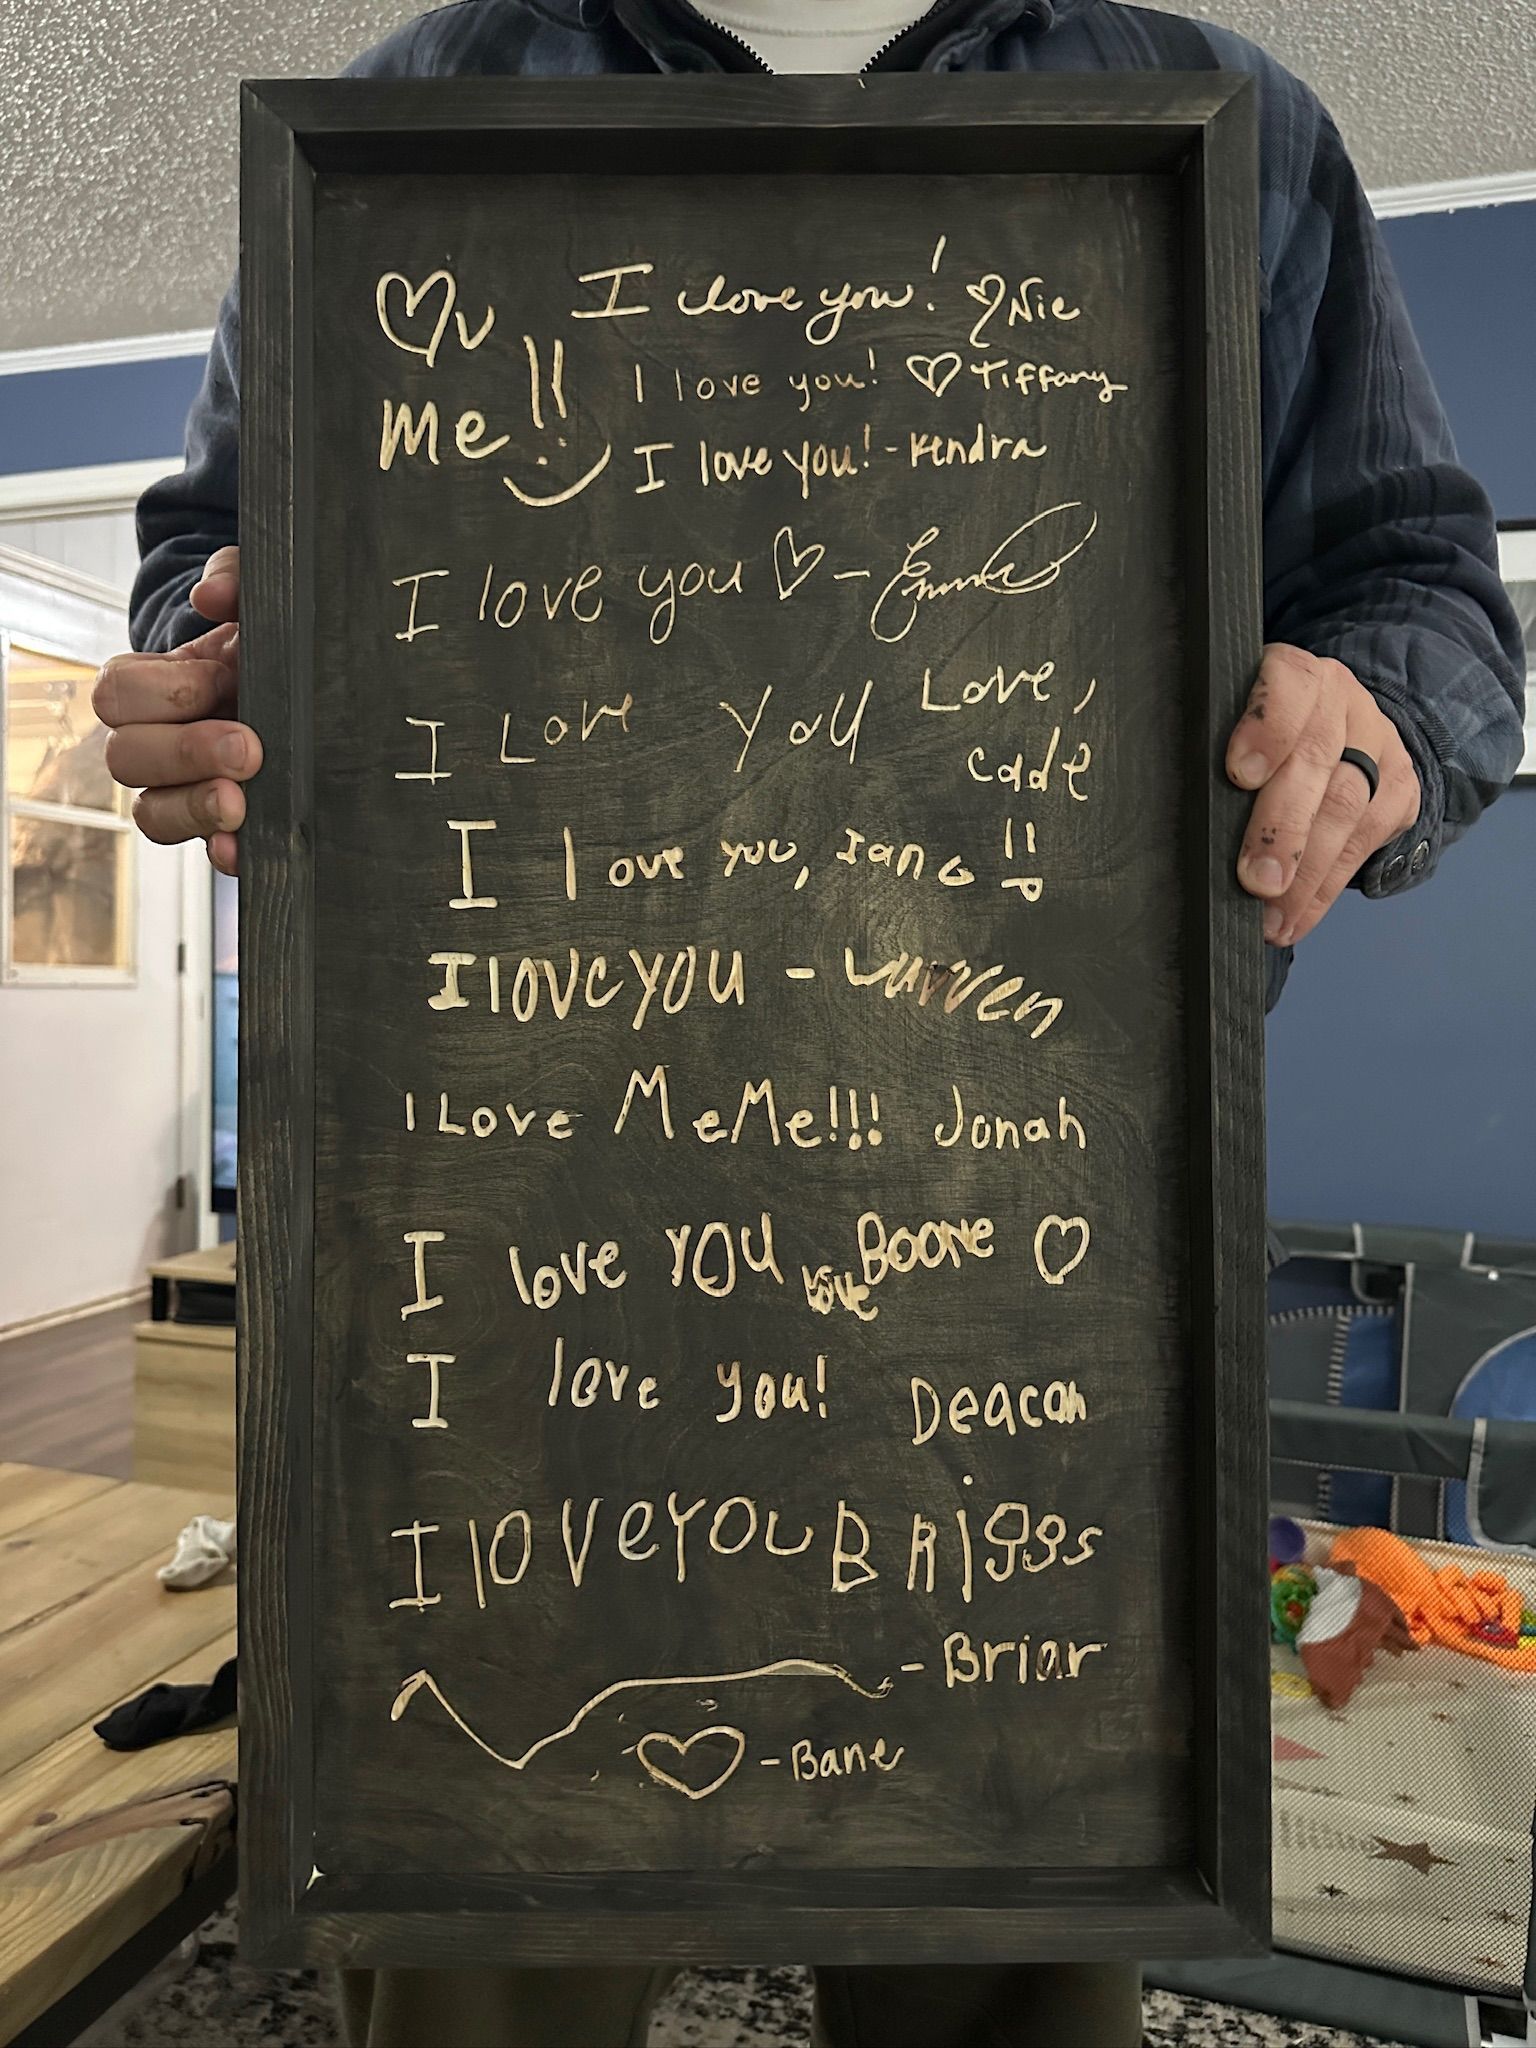 ♡ v
me!!
I love you! ♡Nic
I love you! ♡ Tiffany
I love you! - Kendra
I love you ♡ - Emma
I Love You Love,
Cade
I love you, Ian G
I love you - Warren
I Love MeMe!!! Jonah
I love YOU love Boone ♡
I love you! Deacon
I love You BRiggs
- Briar
♡ - Bane